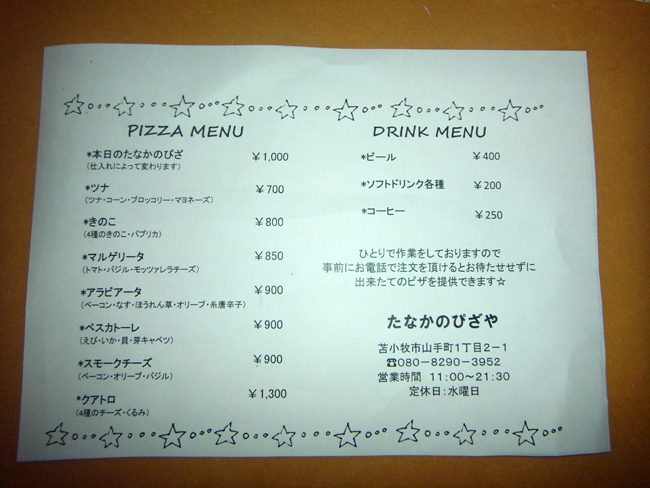 PIZZA MENU
*本日のたなかのぴざ ￥1,000
(仕入れによって変わります)
*ツナ ￥700
(ツナ・コーン・ブロッコリー・マヨネーズ)
*きのこ ￥800
(4種のきのこ・パプリカ)
*マルゲリータ ￥850
(トマト・バジル・モッツァレラチーズ)
*アラビアータ ￥900
(ベーコン・なす・ほうれん草・オリーブ・糸唐辛子)
*ペスカトーレ ￥900
(えび・いか・貝・芽キャベツ)
*スモークチーズ ￥900
(ベーコン・オリーブ・バジル)
*クアトロ ￥1,300
(4種のチーズ・くるみ)
DRINK MENU
*ビール ￥400
*ソフトドリンク各種 ￥200
*コーヒー ￥250
ひとりで作業をしておりますので
事前にお電話で注文を頂けるとお待たせせずに
出来たてのピザを提供できます☆
たなかのぴざや
苫小牧市山手町1丁目2－1
☎080－8290－3952
営業時間 11:00～21:30
定休日:水曜日